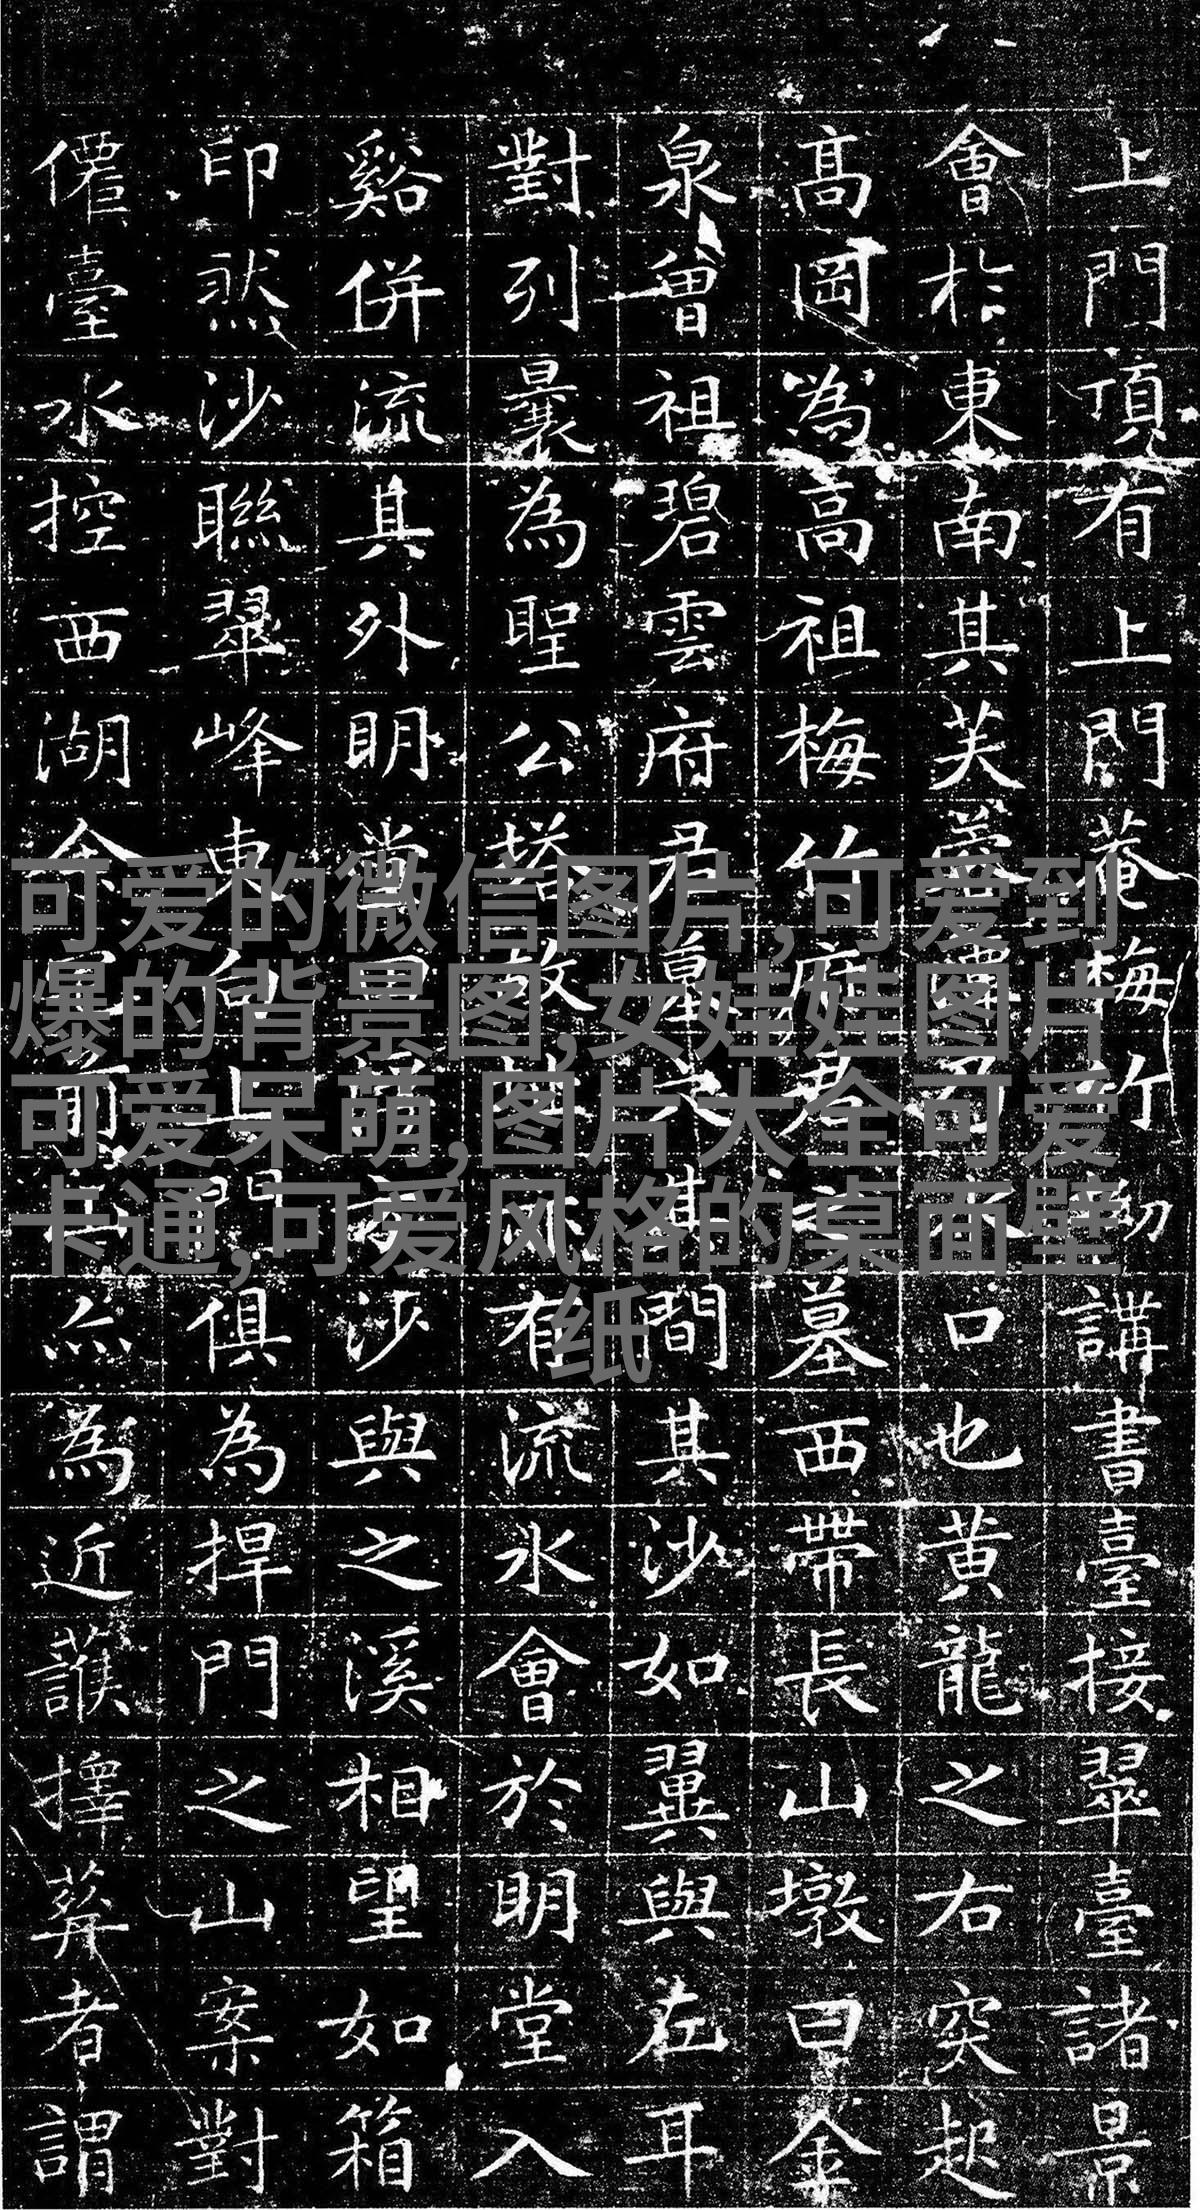 上門頂有上門菴梅竹講書臺接翠臺諸景
會於東南其芙蓉口也黃龍之右突起
高岡為高祖梅竹府君墓西帶長山墩曰金
泉曾祖碧雲府君墓其間其沙如翼與左耳
對列曩為聖公塔故有流水會於明堂入
谿併流其外明堂沙與之溪相望如箱
印然沙聯翠峰東向上門俱為捍門之山案對
僊臺水控西湖余為近擇葬者謂
可爱的微信图片,可爱到
爆的背景图,女娃娃图片
可爱呆萌,图片大全可爱
卡通,可爱风格的桌面壁
纸